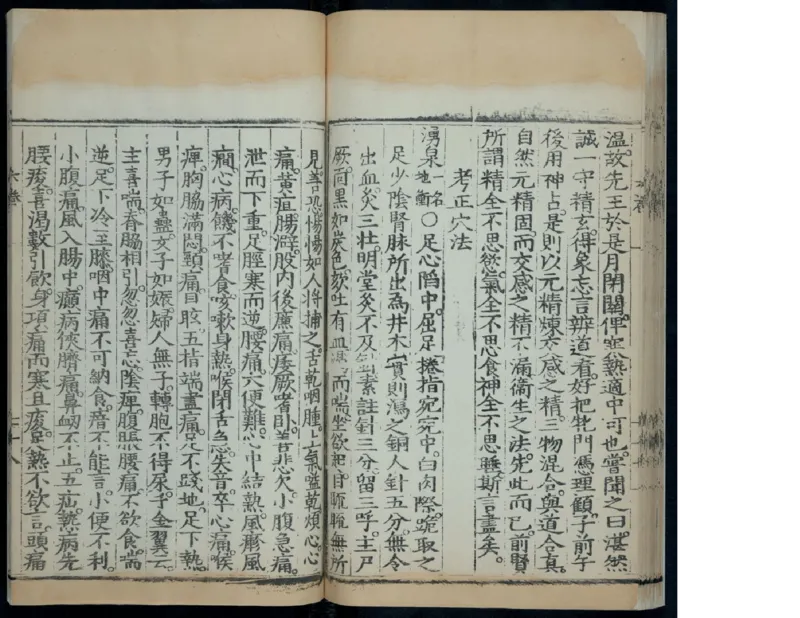 溫故先王於是月閉關俾寒熱適中可也嘗聞之曰湛然
誠一守精玄得象忘言辨道看好把牝門憑理顧子前午
後用神占是則以元精煉交感之精三物混合與道合真
自然元精固而交感之精不漏衞生之法先此而已前賢
所謂精全不思慾氣全不思食神全不思睡斯言盡矣
考正穴法
湧泉一名地衝○足心陷中屈足捲指宛宛中白肉際跪取之
足少陰腎脉所出為井木實則瀉之銅人針五分無令
出血灸三壯明堂灸不及針素註針三分留三呼主尸
厥面黑如炭色咳吐有血渴而喘坐欲起目䀮䀮無所
見善恐惕惕如人將捕之舌乾咽腫上氣嗌乾煩心心
痛黃疸腸澼股內後廉痛痿厥嗜卧善悲欠小腹急痛
泄而下重足脛寒而逆腰痛大便難心中結熱風疹風
癇心病饑不嗜食咳嗽身熱喉閉舌急失音卒心痛喉
痺胸脇滿悶頸痛目眩五指端盡痛足不踐地足下熱
男子如蠱女子如娠婦人無子轉胞不得尿千金翼云
主喜喘脊脇相引忽忽喜忘陰痺腹脹腰痛不欲食喘
逆足下冷至膝咽中痛不可納食瘖不能言小便不利
小腹痛風入腸中癲病俠臍痛鼻衄不止五疝熱病先
腰痠喜渴數引飲身項痛而寒且痠足熱不欲言頭痛